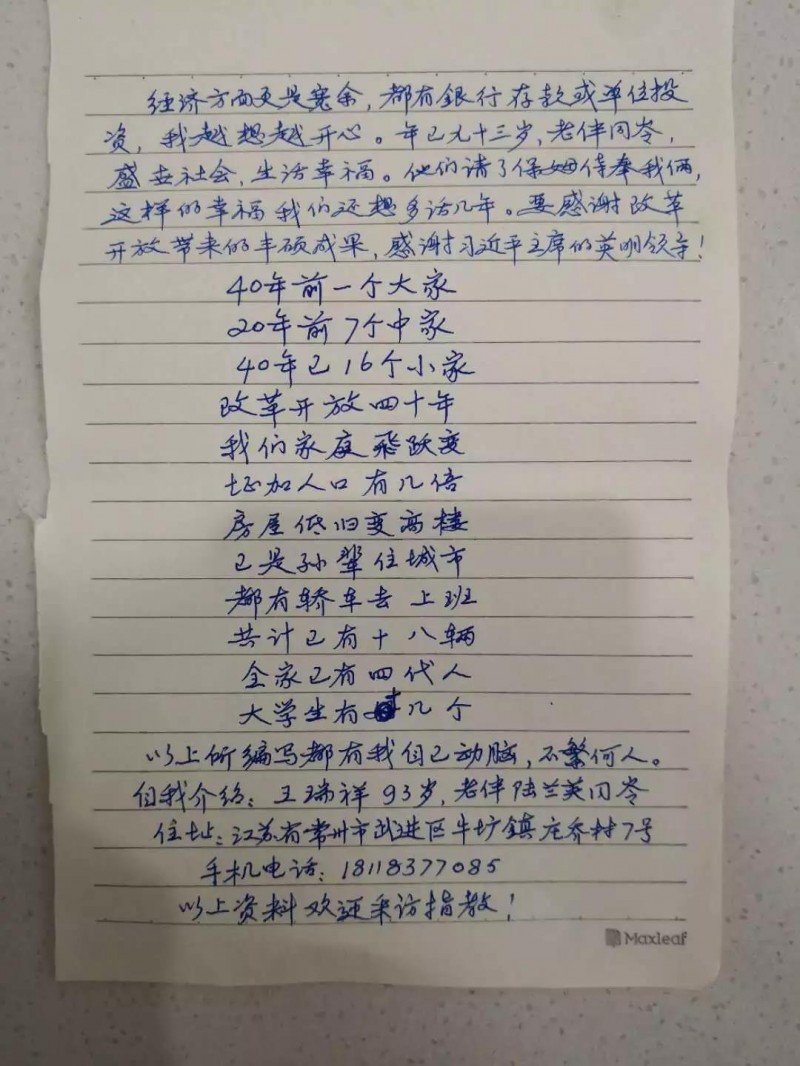 经济方面更是宽余，都有銀行存款或单位投
资，我越想越开心。年已九十三岁，老伴同岺，
盛世社会，生活幸福。他们请了保姆侍奉我俩，
这样的幸福我们还想多活几年。要感谢改革
开放带来的丰硕成果，感谢习近平主席的英明领导！
40年前一个大家
20年前7个中家
40年已16个小家
改革开放四十年
我们家庭飛跃变
增加人口有几倍
房屋低旧变高楼
已是孙辈住城市
都有轿车去上班
共计已有十八辆
全家已有四代人
大学生有十几个
以上所编写都有我自己动脑，不繁何人。
自我介绍：王瑞祥93岁，老伴陆兰英同岺
住址：江苏省常州市武进区牛圹鎮庄乔村7号
手机电话：18118377085
以上资料欢迎来访指教！
Maxleaf